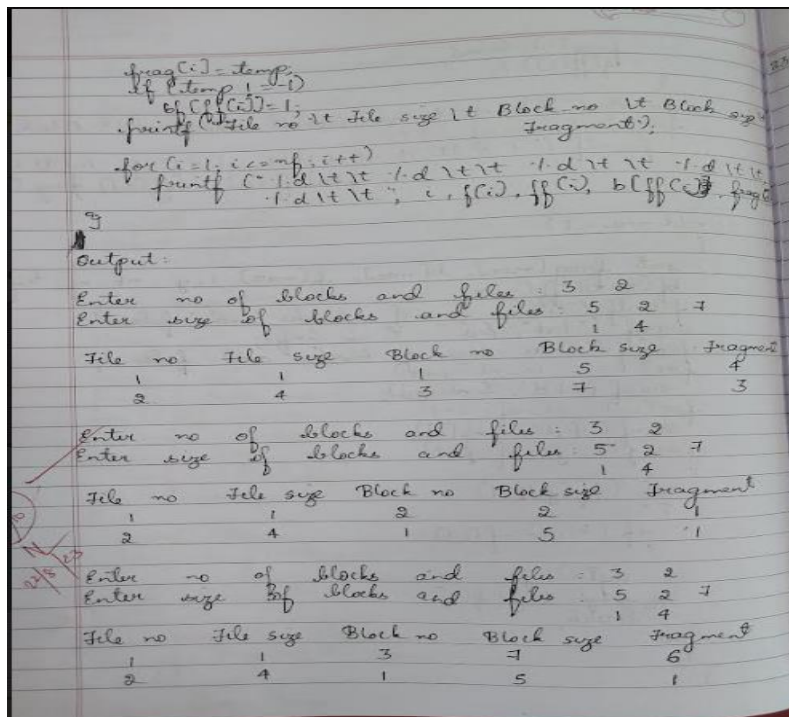 frag[i] = temp;
if (temp != -1)
bf[ff[i]] = 1;
printf("File no \t File size \t Block no \t Block size
Fragment");
for(i=1; i<=nf; i++)
printf("%d\t\t %d\t\t %d\t\t
%d\t\t", i, f[i], ff[i], b[ff[i]], frag[i]
}
Output:
Enter no of blocks and files : 3 2
Enter size of blocks and files : 5 2 7
1 4
File no File size Block no Block size Fragment
1 1 1 5 4
2 4 3 7 3
Enter no of blocks and files : 3 2
Enter size of blocks and files : 5 2 7
1 4
File no File size Block no Block size Fragment
1 1 2 2 1
2 4 1 5 1
Enter no of blocks and files : 3 2
Enter size of blocks and files : 5 2 7
1 4
File no File size Block no Block size Fragment
1 1 3 7 6
2 4 1 5 1